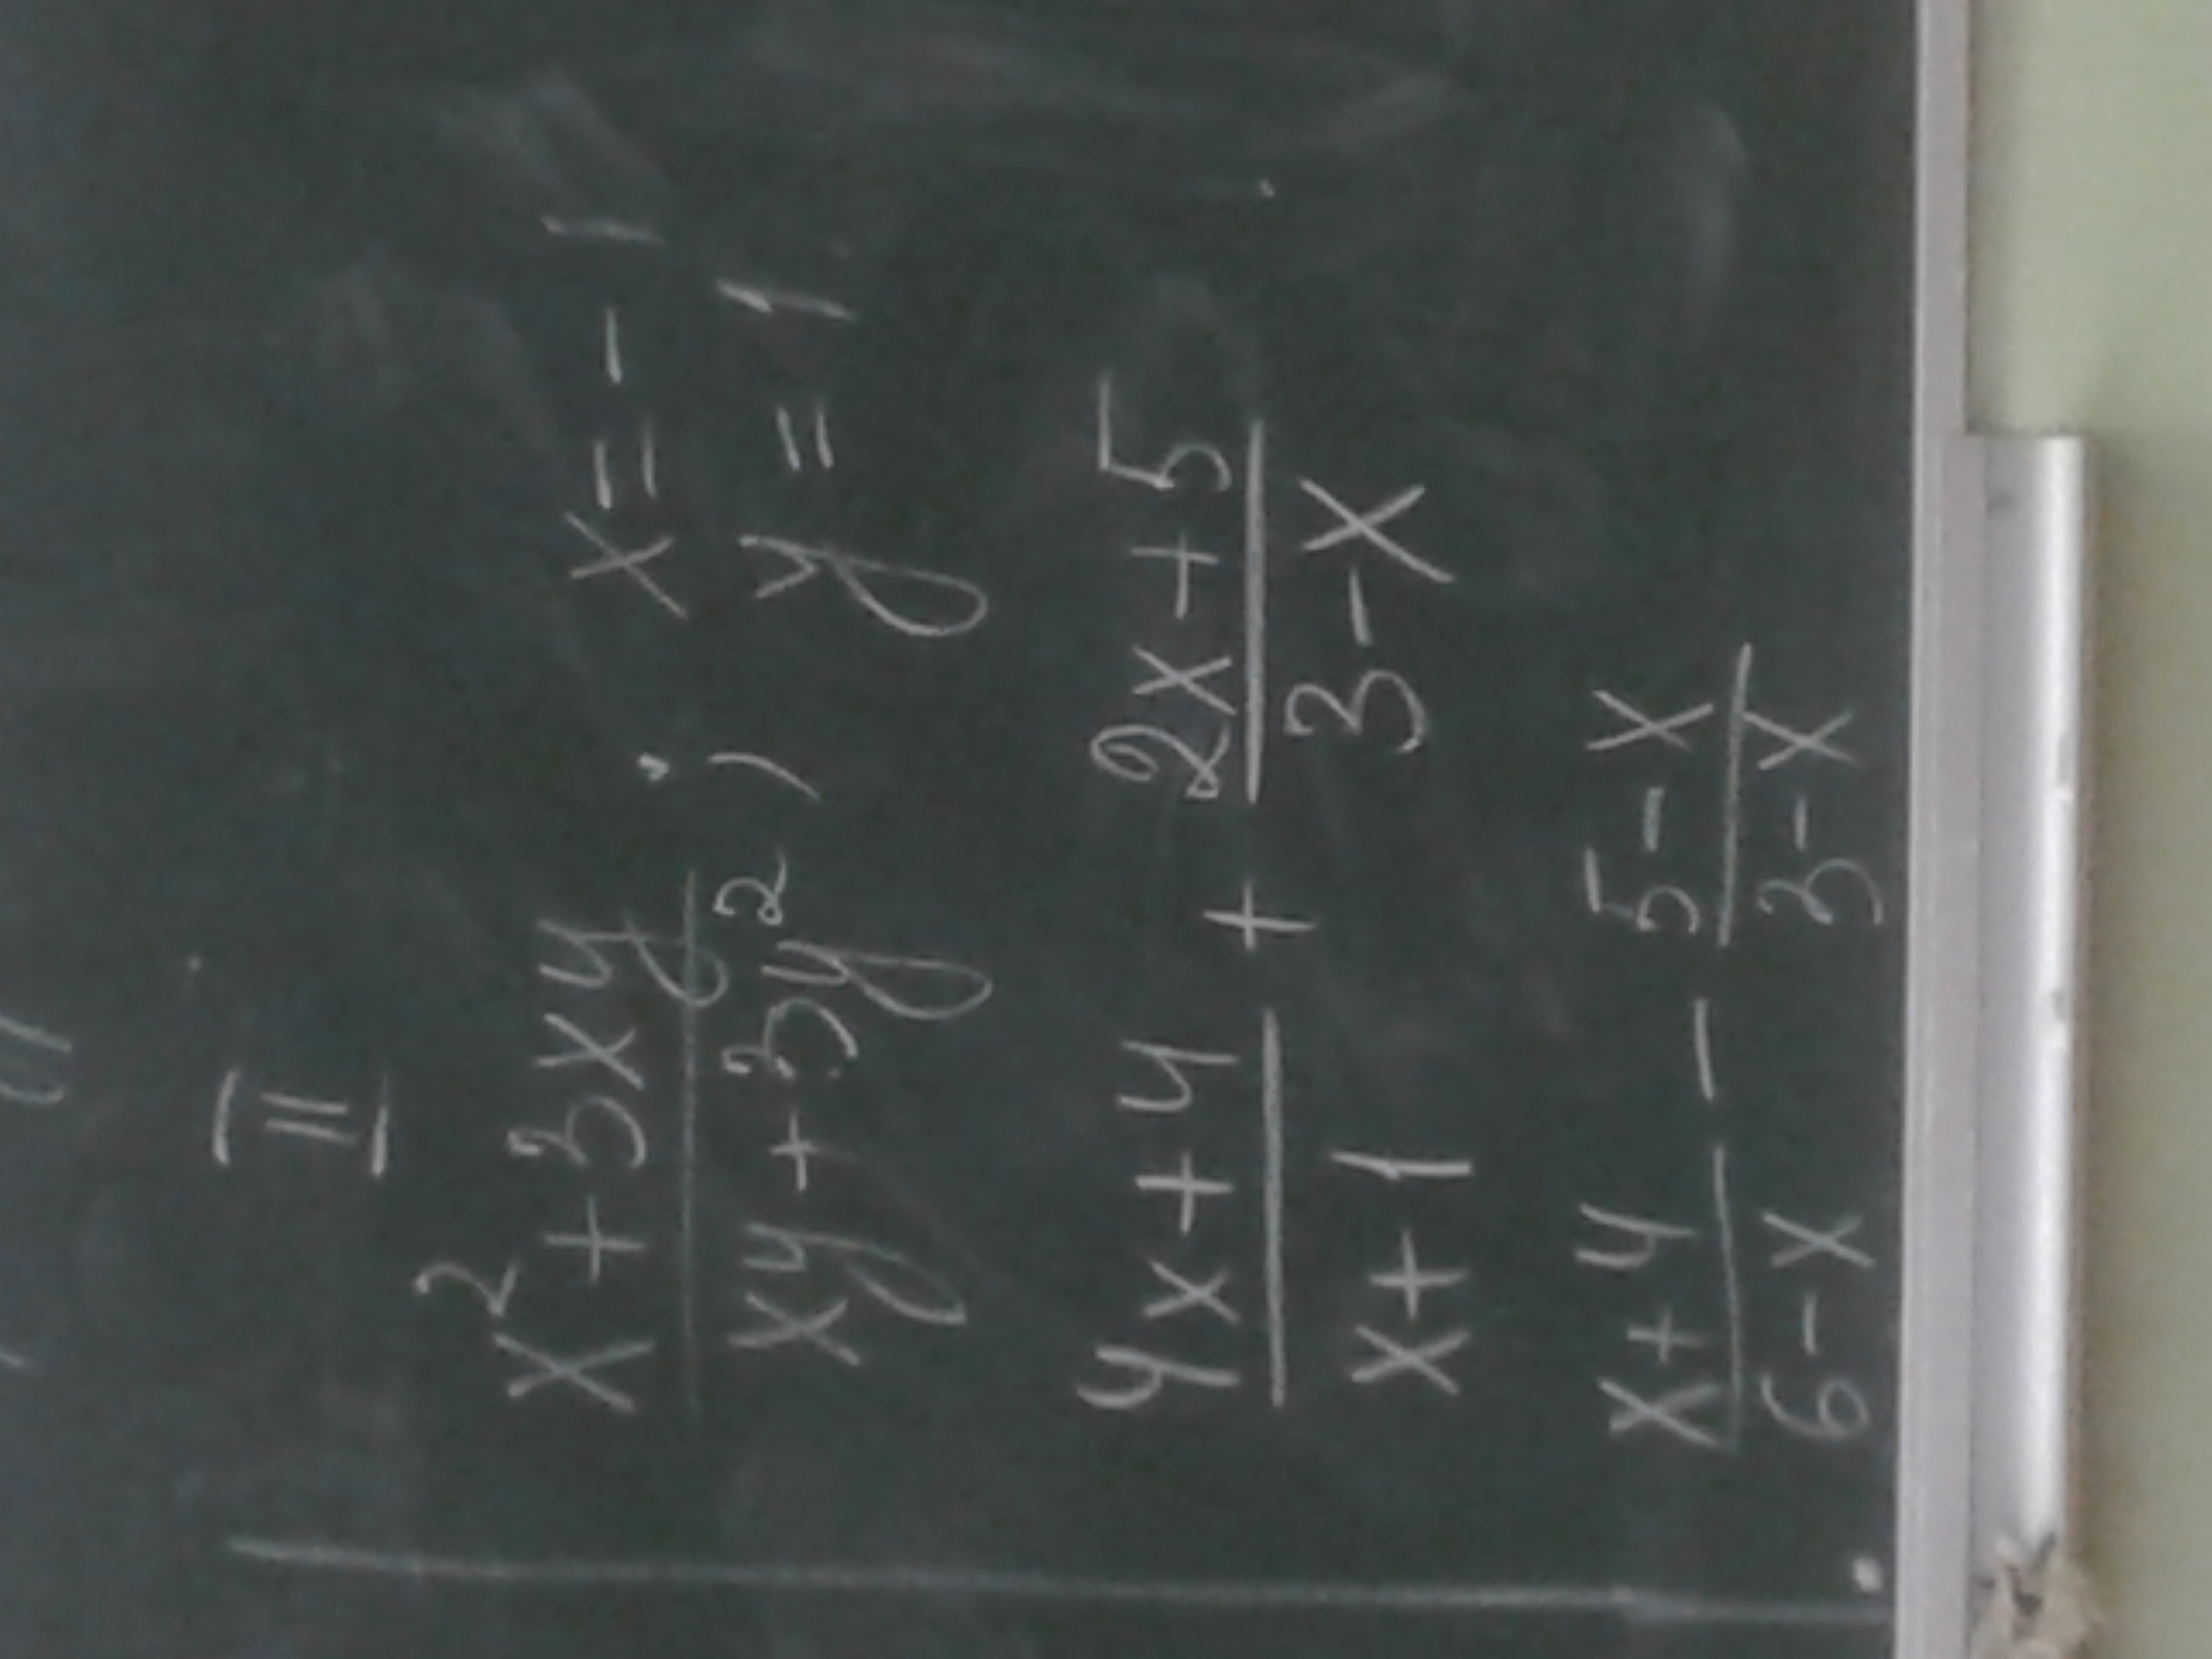 II
x² + 3xy / xy + 3y² ; x = -1 y = 1
4x + 4 / x + 1 + 2x + 5 / 3 - x
x + 4 / 6 - x - 5 - x / 3 - x